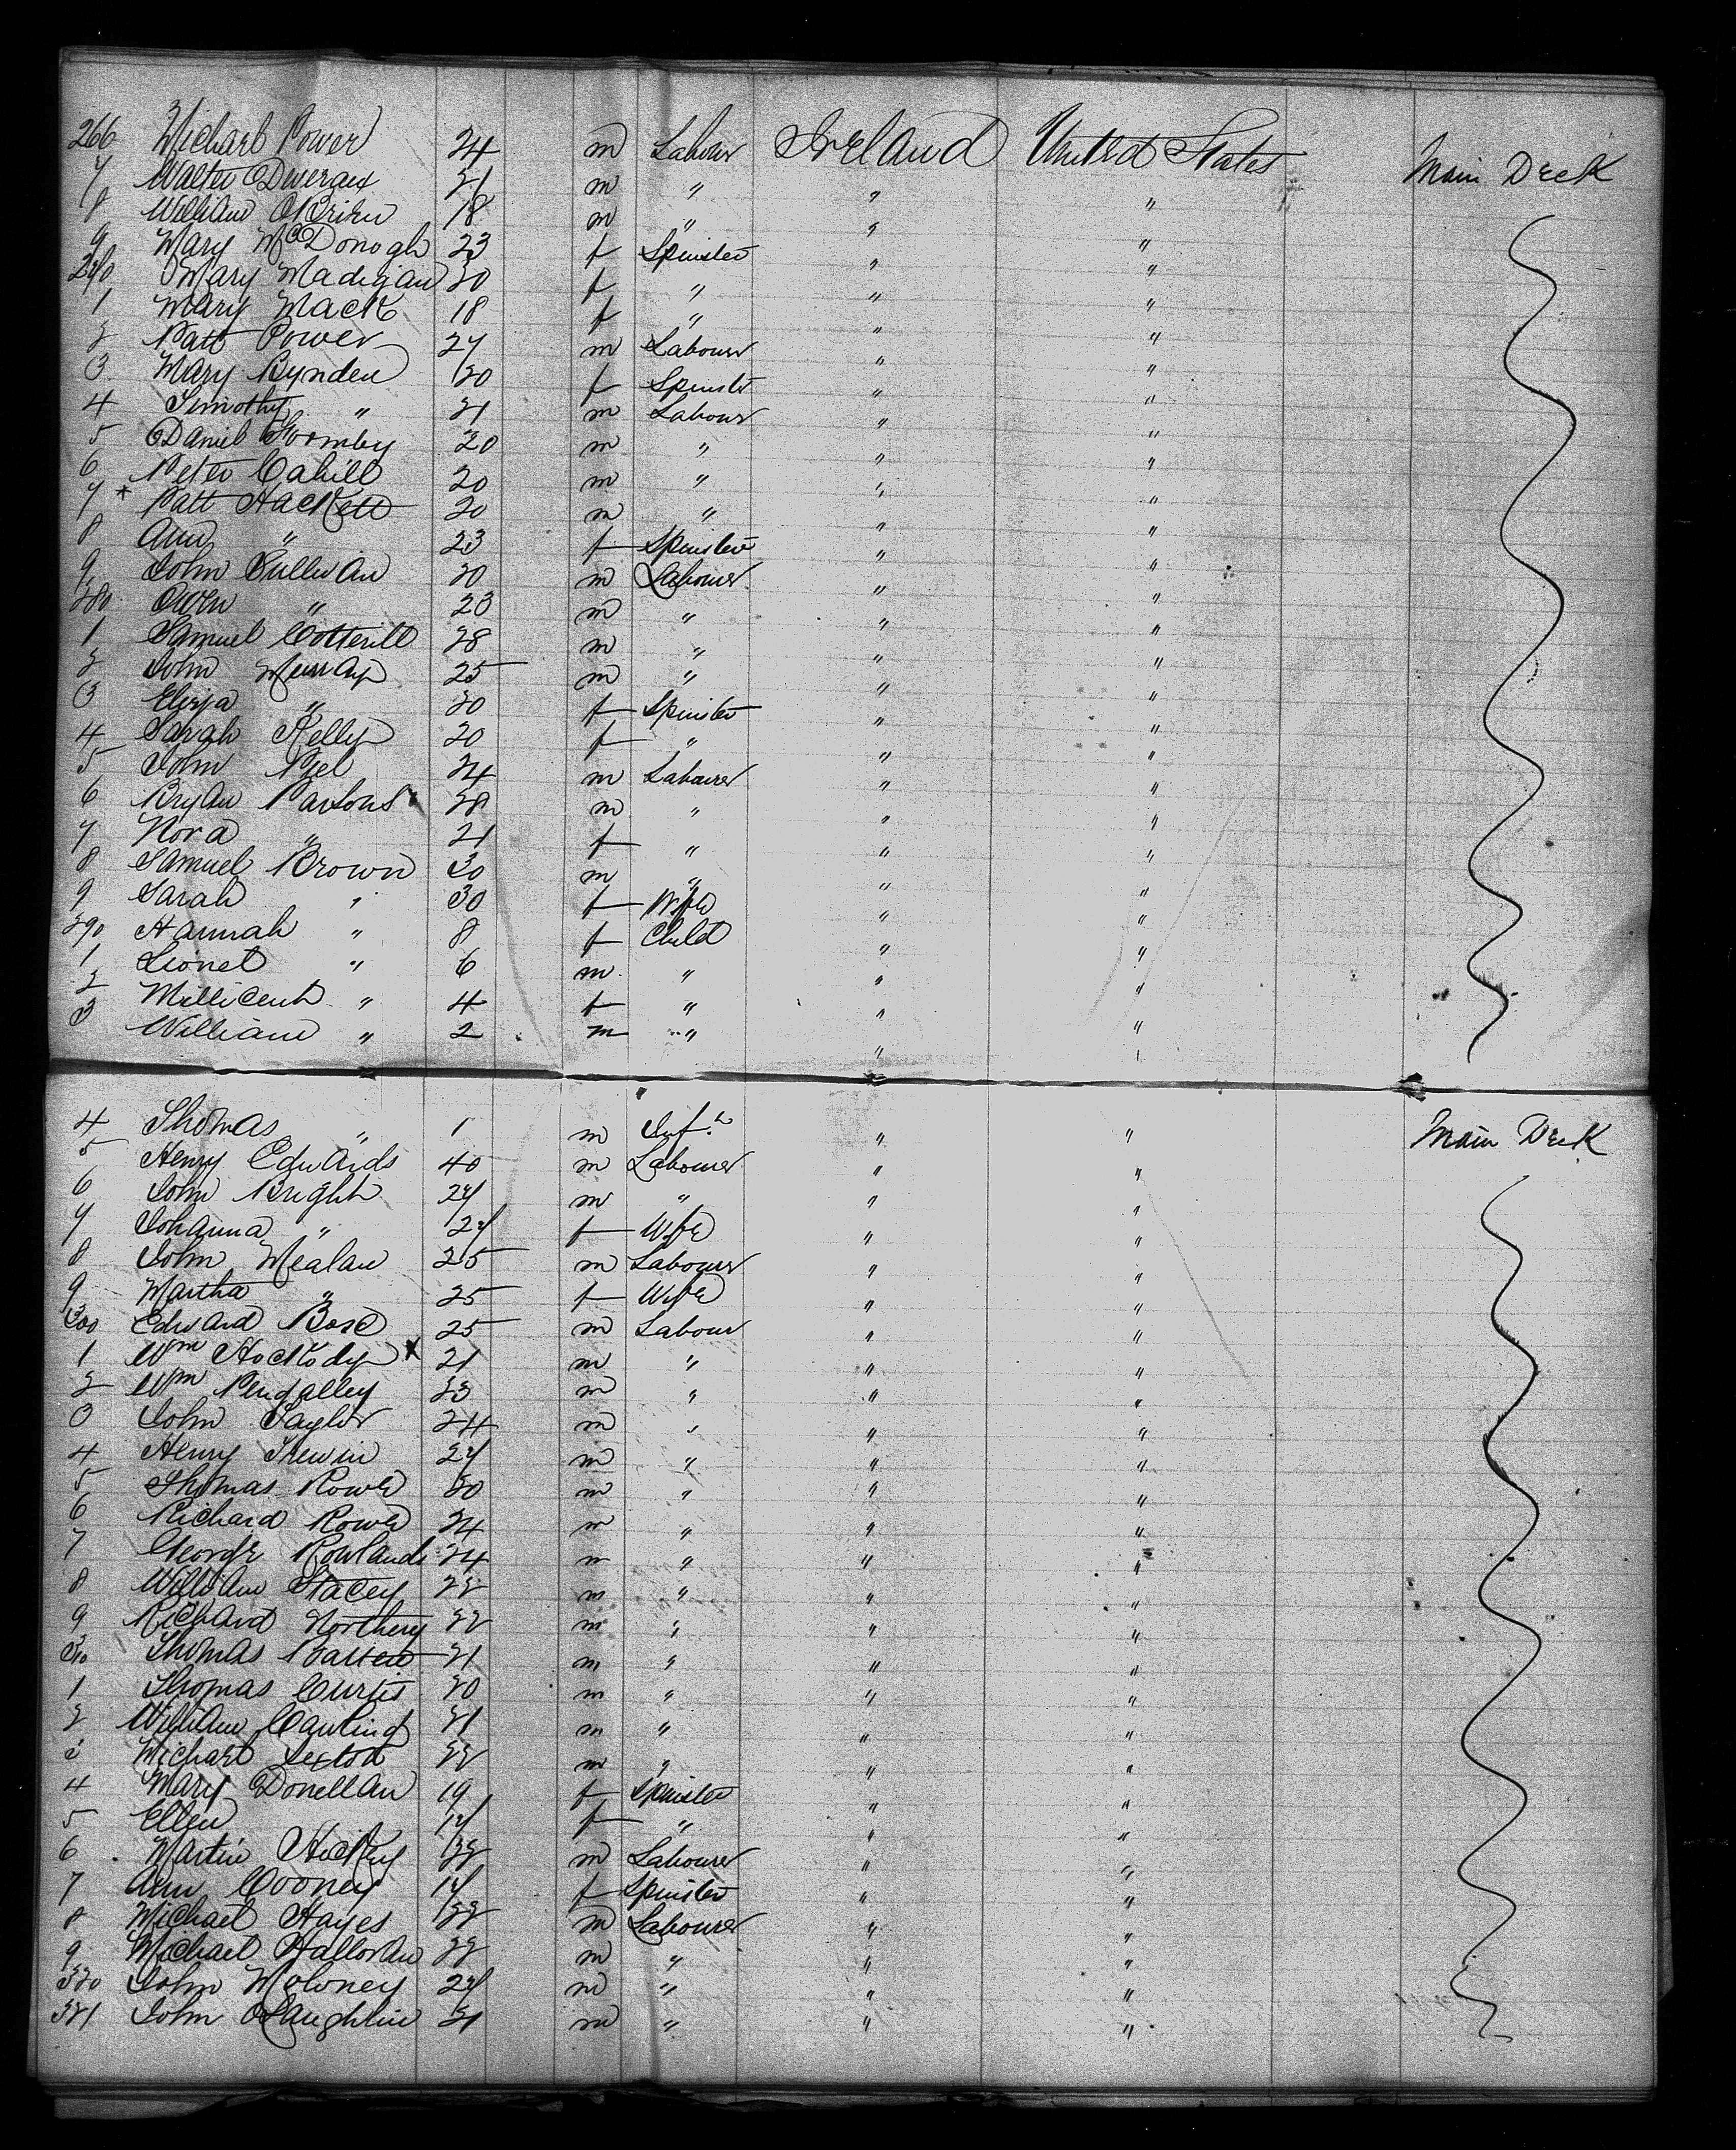 266 Michael Power 24 m Labour Ireland United States Main Deck
7 Walter Deveraux 21 m " " "
8 William OBrien 18 m " " "
9 Mary McDonogh 23 f Spinster " "
270 Mary Madigan 20 f " " "
1 Mary Mack 18 f " " "
2 Patt Power 27 m Labourer " "
3 Mary Bynden 20 f Spinster " "
4 Timothy " 21 m Labour " "
5 Daniel Gormley 20 m " " "
6 Peter Cahill 20 m " " "
7 * Patt Hackett 20 m " " "
8 Ann " 23 f Spinster " "
9 John Sullivan 20 m Labourer " "
280 Owen " 23 m " " "
1 Samuel Cotterill 28 m " " "
2 John Murray 25 m " " "
3 Eliza " 20 f Spinster " "
4 Sarah Kelly 20 f " " "
5 John Peel 24 m Labourer " "
6 Bryan Parsons 28 m " " "
7 Nora " 21 f " " "
8 Samuel Brown 30 m " " "
9 Sarah " 30 f Wife " "
290 Hannah " 8 f Child " "
1 Lionel " 6 m " " "
2 Millicent " 4 f " " "
3 William " 2 m " " "
4 Thomas " 1 m Inft " " Main Deck
5 Henry Edwards 40 m Labourer " "
6 John Bright 27 m " " "
7 Johanna " 27 f Wife " "
8 John Mealan 25 m Labourer " "
9 Martha " 25 f Wife " "
300 Edward Bose 25 m Labour " "
1 Wm Hockody X 21 m " " "
2 Wm Pengalley 23 m " " "
3 John Taylor 24 m " " "
4 Henry Trewin 27 m " " "
5 Thomas Rowe 20 m " " "
6 Richard Rowe 24 m " " "
7 George Rowlands 24 m " " "
8 William Stacey 22 m " " "
9 Richard Northey 22 m " " "
310 Thomas Batten 21 m " " "
1 Thomas Curtis 20 m " " "
2 William Cawling 21 m " " "
3 Michael Sexton 22 m " " "
4 Mary Donellan 19 f Spinster " "
5 Ellen 17 f " " "
6 Martin Hickey 22 m Labourer " "
7 Ann Cooney 17 f Spinster " "
8 Michael Hayes 22 m Labourer " "
9 Michael Halloran 22 m " " "
320 John Moloney 27 m " " "
321 John OLaughlin 21 m " " "